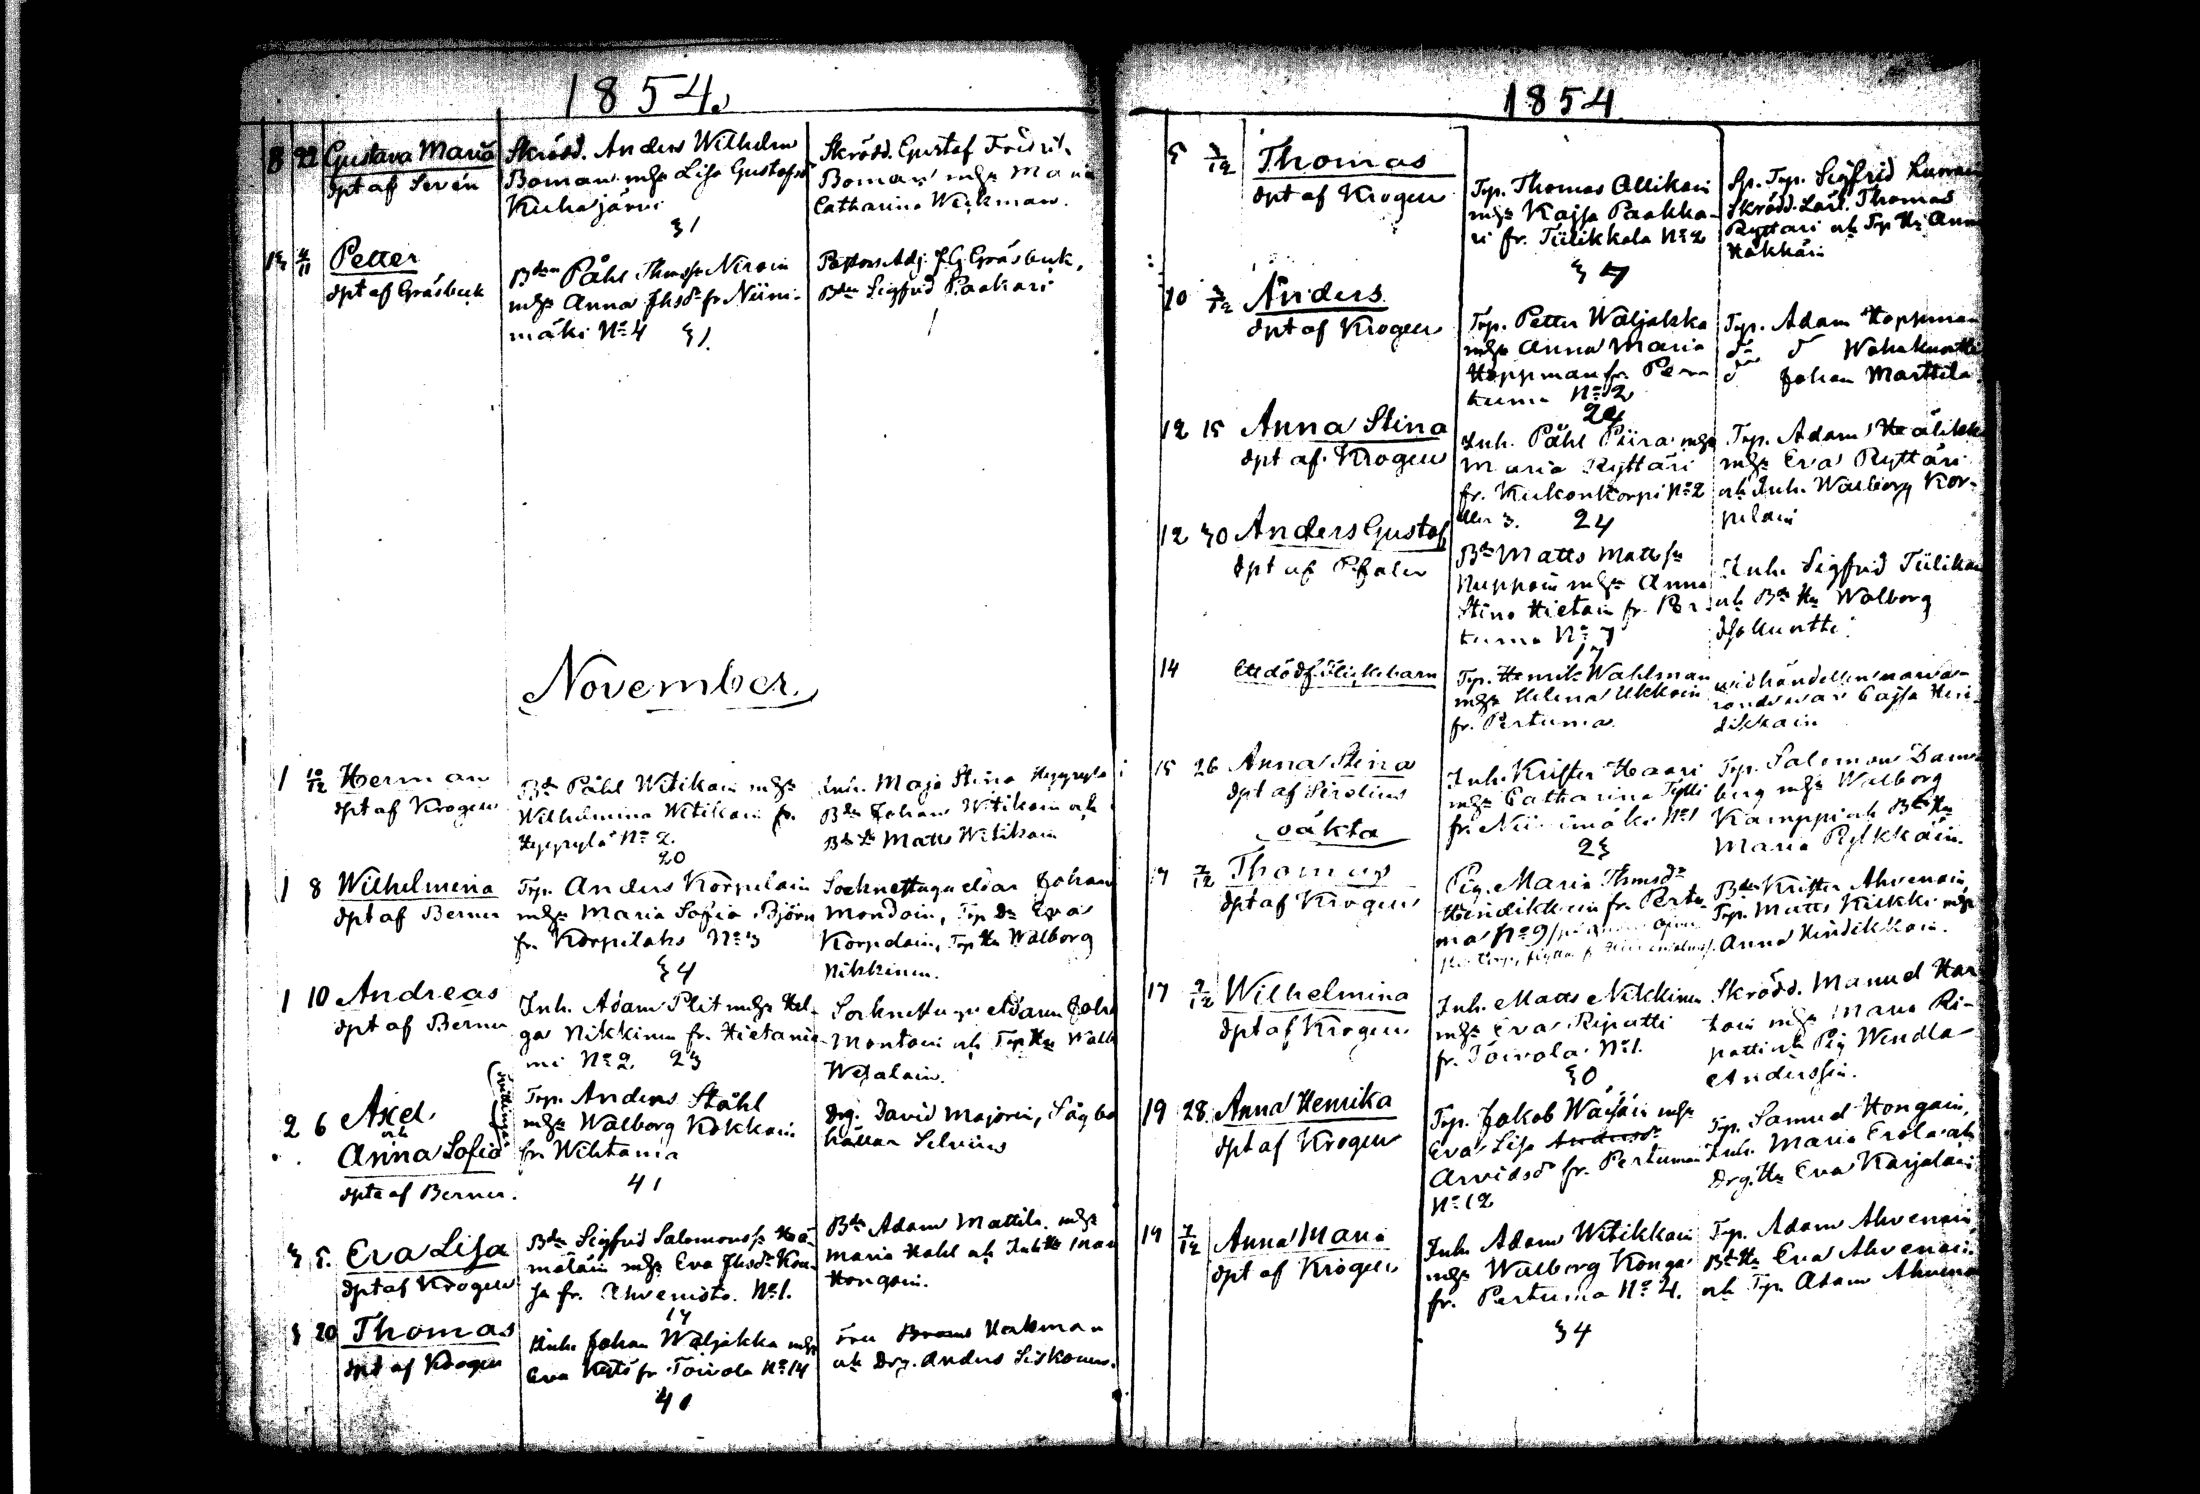 1854.
8 22 Gustava Maria
dpt af Serén
Skrädd. Anders Wilhelm
Boman m. h:u Lisa Gustafsd.
Kuhajärvi
31
Skrädd. Gustaf Fridrik
Boman m. h:u Maria
Catharina Weckman.
13 4/11 Petter
dpt af Gråsbeck
Bden Påhl Thomss. Niroin
m. h:u Anna Jhsdr fr. Niini-
mäki No 4 31.
Pastors Adj. J. G. Gråsbeck,
Bden Sigfrid Paakari
November.
1 10/12 Herman
dpt af Krogen
Bd. Påhl Witikain m. h:u
Wilhelmina Witikain fr.
Hyyrylä No 2.
20
Inh. Maja Stina Hyyrylä
Bden Johan Witikain och
Matts Witikain
1 8 Wilhelmina
dpt af Berner
Trp. Anders Korpelain
m. h:u Maria Sofia Björn
fr. Korpilaks No 3
34
Socknettugueldar Johan
Mondoin, Trp Dr Eva
Korpelain, Trp Hu Walborg
Nikkinen.
1 10 Andreas
dpt af Berner
Inh. Adam Plit m. h:u Hel-
ga Nikkinen fr. Hietanie-
mi No 2. 23
Johan
Montoin och Trp Hu Walb
2 6 Axel
och
Anna Sofia
dpte af Berner.
Trp. Anders Ståhl
m. h:u Walborg Kokkoin
fr. Wihtama
41
Drg. David Majorin, Sågbo
hållar Selenius
3 5. Eva Lisa
dpt af Krogen
Bden Sigfrid Salomonss. Hä-
mäläin m. h:u Eva Jhsdr Kon-
sa fr. Ahvenisto. No 1.
17
Bden Adam Mattila m. h:u
Maria Hahl och Inh Hu Mari
Hongain.
3 20 Thomas
dpt af Krogen
Inh. Johan Waljakka m. h:u
Eva Kyts fr. Toivola No 14
40
Herkman
och Drg. Anders Siskonen.
1854
5 3/12 Thomas
dpt af Krogen
Trp. Thomas Ollikain
m. h:u Kajsa Paakka-
ri fr. Tiilikkala No 2
37
Sp. Trp. Sigfrid Luovain
Skrädd. Lärl. Thomas
Ryttäri och Trp Hu Anna
Häkkäin
10 3/12 Anders
dpt af Krogen
Trp. Petter Waljakka
m. h:u Anna Maria
Hoppman fr. Per-
tuma No 2
24
Trp. Adam Hoppman
Wahakuntti
Johan Marttila.
12 15 Anna Stina
dpt af Krogen
Inh. Påhl Piira m. h:u
Maria Ryttäri
fr. Kukonkorpi No 2
eller 3. 24
Trp. Adam
m. h:u Eva Ryttäri
och Inh. Walborg Kor-
pelain
12 30 Anders Gustaf
dpt af Pfaler
Bd Matts Matts sn
Nuppoin m. h:u Anna
Stina Hietain fr. Per-
tuma No 7
17
Inh. Sigfrid Tiilikai
och Bds Hu Walborg
14 Ett dödfödt flickebarn
Trp. Henrik Wahlman
m. h:u Helena Ukkoin
fr. Pertuma
vid händelsen narva-
rande war Cajsa Hen-
dikkain
15 26 Anna Stina
dpt af Sirelius
oäkta
Inh. Krister Haari
m. h:u Catharina Tylli
fr. Niinimäki No 1
23
Trp. Salomon Dam-
berg m. h:u Walborg
Kamppi och Bd Hu
Maria Pylkkäin.
17 7/12 Thomas
dpt af Krogen
Pig. Maria Thomsdr
Hendikkain fr. Pertu-
ma No 9
Bden Krister Ahvenain,
Trp. Matts Kukki m. h:u
Anna Hendikkain.
17 9/12 Wilhelmina
dpt af Krogen
Inh. Matts Nikkinen
m. h:u Eva Ripatti
fr. Toivola No 1.
30
Skrädd. Manuel Har-
toin m. h:u Maria Ri-
patti och Pig Wendla
Andersson.
19 28 Anna Henrika
dpt af Krogen
Trp. Jakob Wäisäin m. h:u
Eva Lisa Andersdr
Arvidsdr fr. Pertuma
No 12
Trp. Samuel Hongain,
Inh. Maria Erola och
Drg. Hu Eva Karjalain
19 7/12 Anna Maria
dpt af Krogen
Inh. Adam Witikkain
m. h:u Walborg Konga
fr. Pertuma No 4.
34
Trp. Adam Ahvenain,
Bd Hu Eva Ahvenain
och Trp. Adam Ahvenai